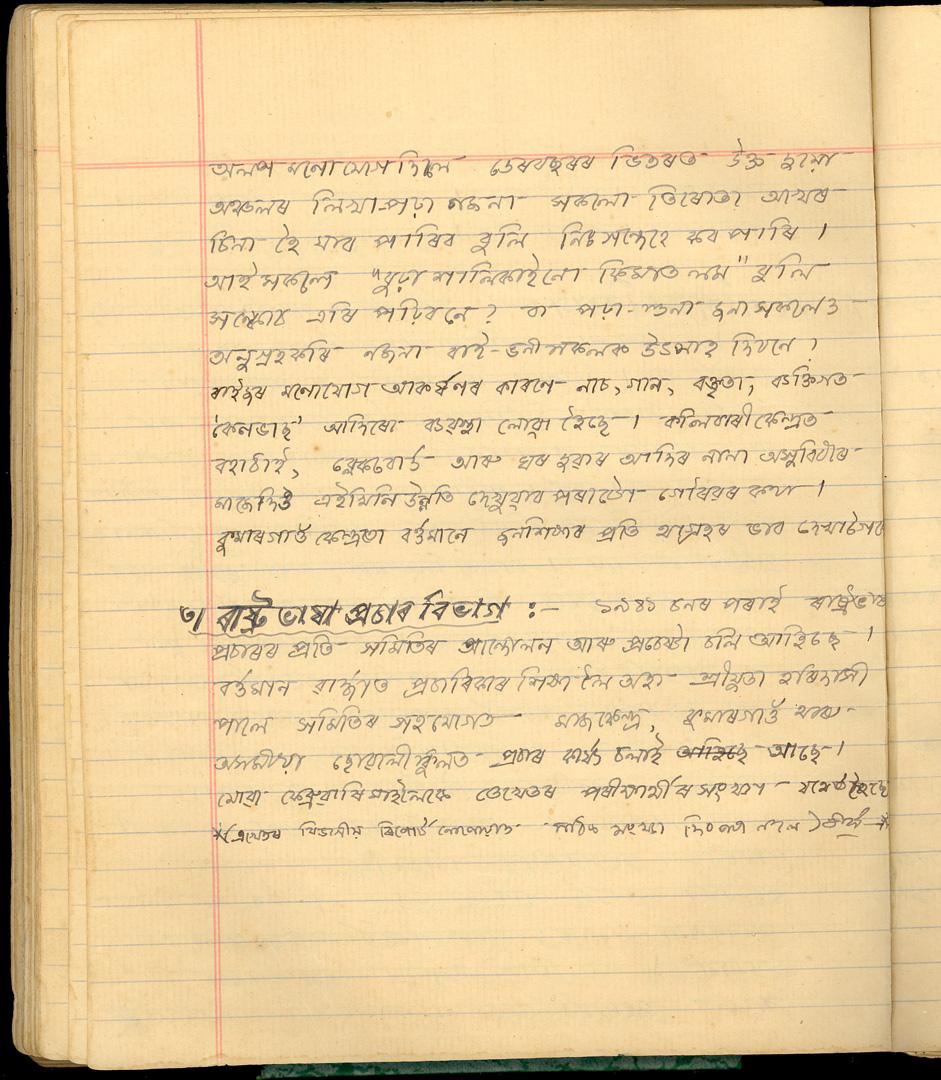 অলপ মনোযোগ দিলে ডেৰবছৰৰ ভিতৰত উক্ত দুয়ো
অঞ্চলৰ লিখা-পঢ়া নজনা সকলো তিৰোতা আখৰ
চিনা হৈ যাব পাৰিব বুলি নিঃসন্দেহে কব পাৰি ।
আই সকলে "বুঢ়া শালিকাইনো কিমাত লয়" বুলি
সঙ্কোচ এৰি পঢ়িবনে ? বা পঢ়া-শুনা জনা সকলেও
অনুগ্ৰহকৰি নজনা বাই-ভনী সকলক উৎসাহ দিবনে ?
ৰাইজৰ মনোযোগ আকৰ্ষণৰ কাৰণে নাচ, গান, বক্তৃতা, ব্যক্তিগত
'কেনভাছ' আদিৰো ব্যৱস্থা লোৱা হৈছে । কলিবাৰী কেন্দ্ৰত
বহাঠাই, ব্লেকবোৰ্ড আৰু ঘৰ দুৱাৰ আদিৰ নানা অসুবিধাৰ
মাজেদিও এইখিনি উন্নতি দেখুৱাব পৰাটো গৌৰৱৰ কথা ।
কুমাৰগাওঁ কেন্দ্ৰতা বৰ্ত্তমানে জনশিক্ষাৰ প্ৰতি আগ্ৰহৰ ভাব দেখা
৩। ৰাষ্ট্ৰ ভাষা প্ৰচাৰ বিভাগ :— ১৯৪১ চনৰ পৰাই ৰাষ্ট্ৰভাষা
প্ৰচাৰৰ প্ৰতি সমিতিৰ আন্দোলন আৰু প্ৰচেষ্টা চলি আহিছে ।
বৰ্ত্তমান ৱাৰ্দ্ধাত প্ৰচাৰিকাৰ শিক্ষা লৈ অহা শ্ৰীযুতা হৰিদাসী
পালে সমিতিৰ সহযোগত মাজকেন্দ্ৰ, কুমাৰগাওঁ আৰু
অসমীয়া ছোৱালী স্কুলত প্ৰচাৰ কাৰ্য্য চলাই আহিছে আছে ।
যোৱা ফেব্ৰুৱাৰি মাহলৈকে তেখেতৰ পৰীক্ষাৰ্থীৰ সংখ্যা যথেষ্ট হৈছে
(এখেতৰ বিভাগীয় ৰিপোৰ্ট নোপোৱাত সঠিক সংখ্যা দিব পৰা নগল)